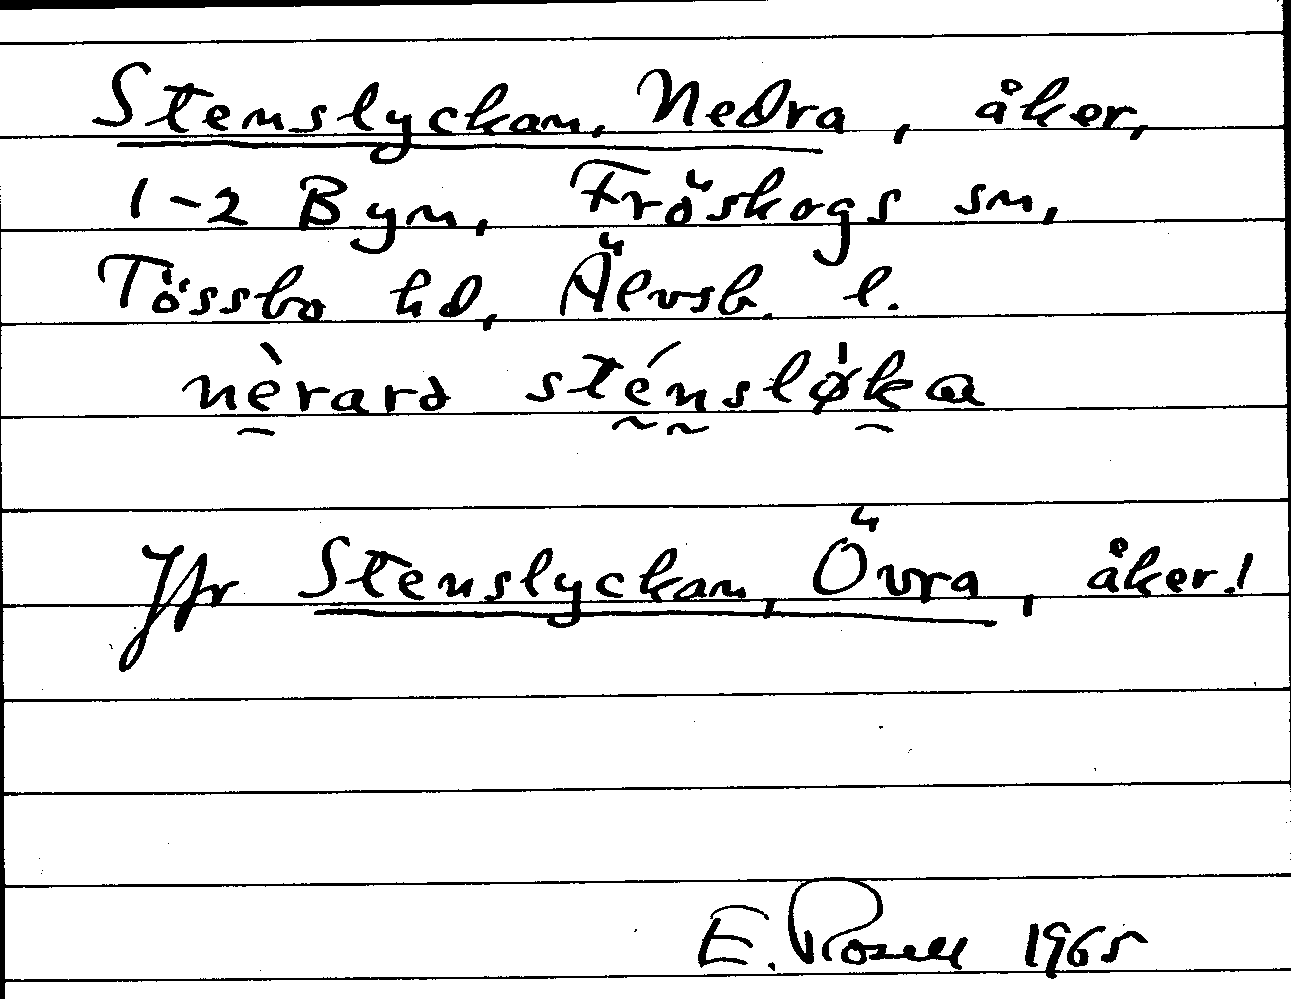 Stenslyckan, Nedra, åker,
1-2 Byn, Fröskogs sn,
Tössbo hd, Älvsb. l.
nè̱rarə sténslø̍ka
Jfr Stenslyckan, Övra, åker!
E. Rosell 1965